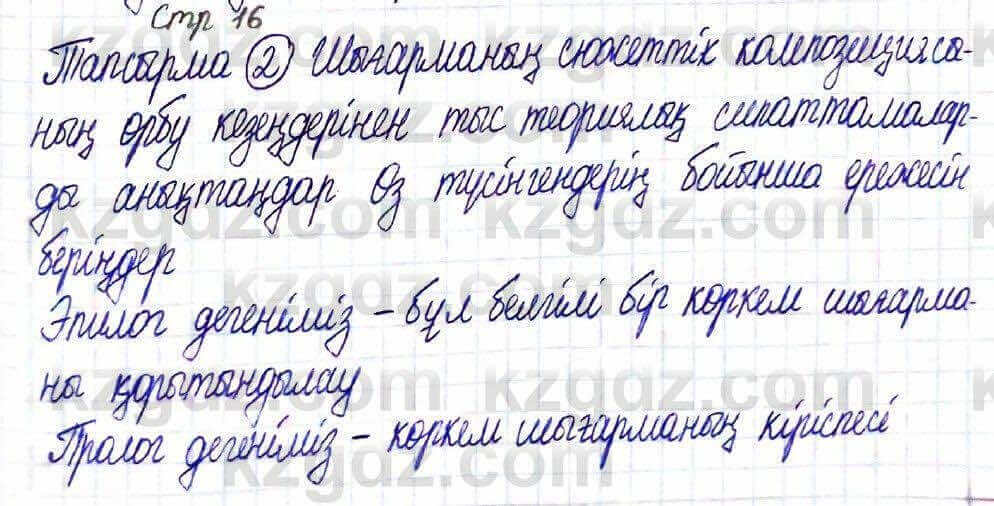 Стр 16
Тапсырма 2 Шығарманың сюжеттік композициясы-
ның өрбу кезеңдерінен тыс теориялық сипаттамалар-
ды анықтаңдар Өз түсінгендерің бойынша ережесін
беріңдер
Эпилог дегеніміз – бұл белгілі бір көркем шығарма-
ны қорытындылау
Пролог дегеніміз – көркем шығарманың кіріспесі
kzgdz.com